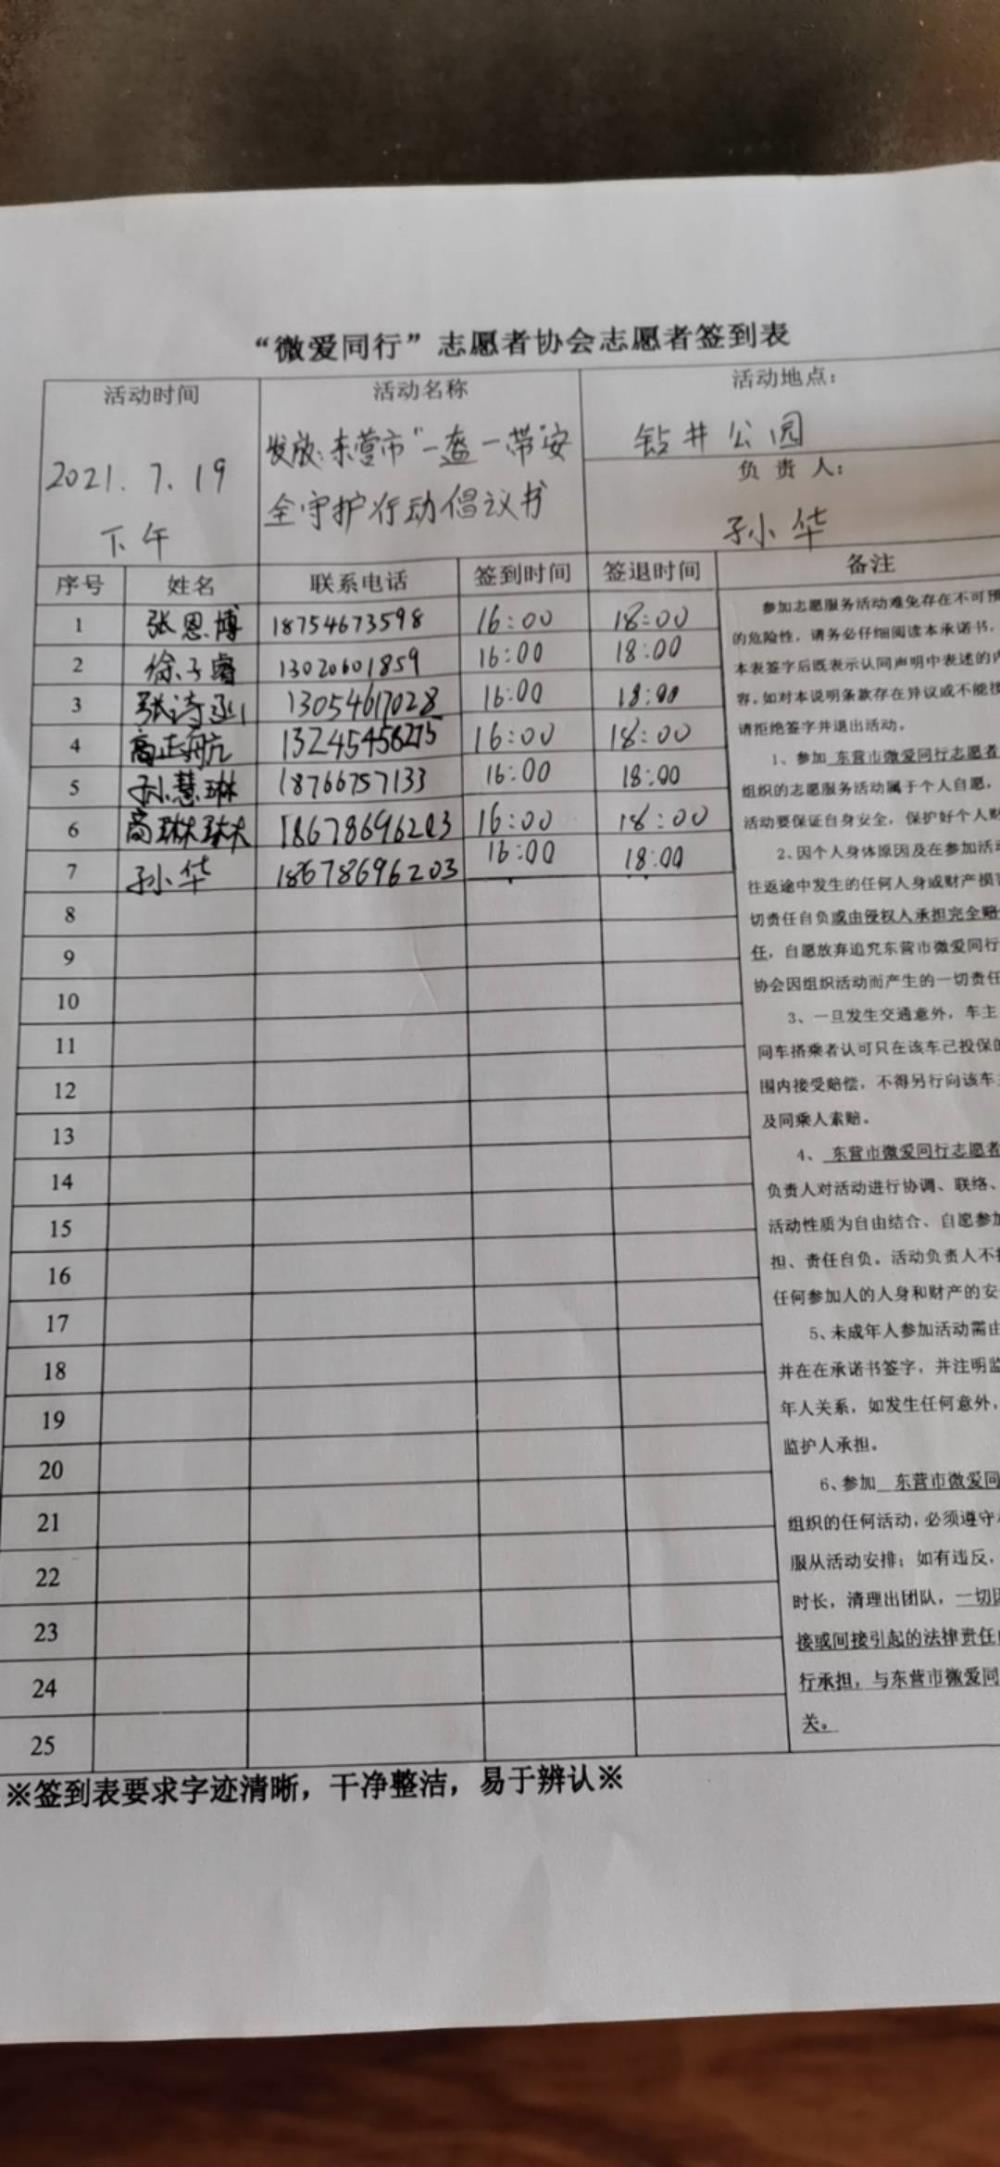 “微爱同行”志愿者协会志愿者签到表
活动时间 活动名称 活动地点：
2021.7.19 下午
发放：东营市“一盔一带”安
全守护行动倡议书
钻井公园
负责人：
孙华
序号 姓名 联系电话 签到时间 签退时间 备注
1 张恩博 18754673598 16:00 18:00
2 徐子睿 13020601859 16:00 18:00
3 张诗涵 13054617028 16:00 18:00
4 高正航 13245456275 16:00 18:00
5 孙慧琳 18766757133 16:00 18:00
6 高琳琳 18678696203 16:00 18:00
7 孙华 18678696203 16:00 18:00
8
9
10
11
12
13
14
15
16
17
18
19
20
21
22
23
24
25
参加志愿服务活动难免存在不可预
的危险性，请务必仔细阅读本承诺书，
本表签字后既表示认同声明中表述的内
容。如对本说明条款存在异议或不能接
请拒绝签字并退出活动。
1、参加 东营市微爱同行志愿者
组织的志愿服务活动属于个人自愿，
活动要保证自身安全，保护好个人财
2、因个人身体原因及在参加活动
往返途中发生的任何人身或财产损害
切责任自负或由侵权人承担完全赔
任，自愿放弃追究东营市微爱同行
协会因组织活动而产生的一切责任
3、一旦发生交通意外，车主
同车搭乘者认可只在该车已投保的
围内接受赔偿，不得另行向该车主
及同乘人索赔。
4、 东营市微爱同行志愿者
负责人对活动进行协调、联络、
活动性质为自由结合、自愿参加
担、责任自负。活动负责人不
任何参加人的人身和财产的安
5、未成年人参加活动需由
并在在承诺书签字，并注明监
年人关系，如发生任何意外，
监护人承担。
6、参加 东营市微爱同
组织的任何活动，必须遵守
服从活动安排；如有违反，
时长，清理出团队，一切因
接或间接引起的法律责任
行承担，与东营市微爱同
关。
※签到表要求字迹清晰，干净整洁，易于辨认※